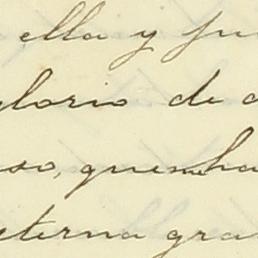 ella y
glorio de
so, quen ha
eterna gra